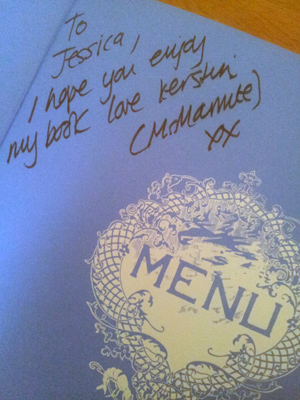 To
Jessica,
I hope you enjoy
my book love Kerstin.
(MsMarmite)
xx
MENU